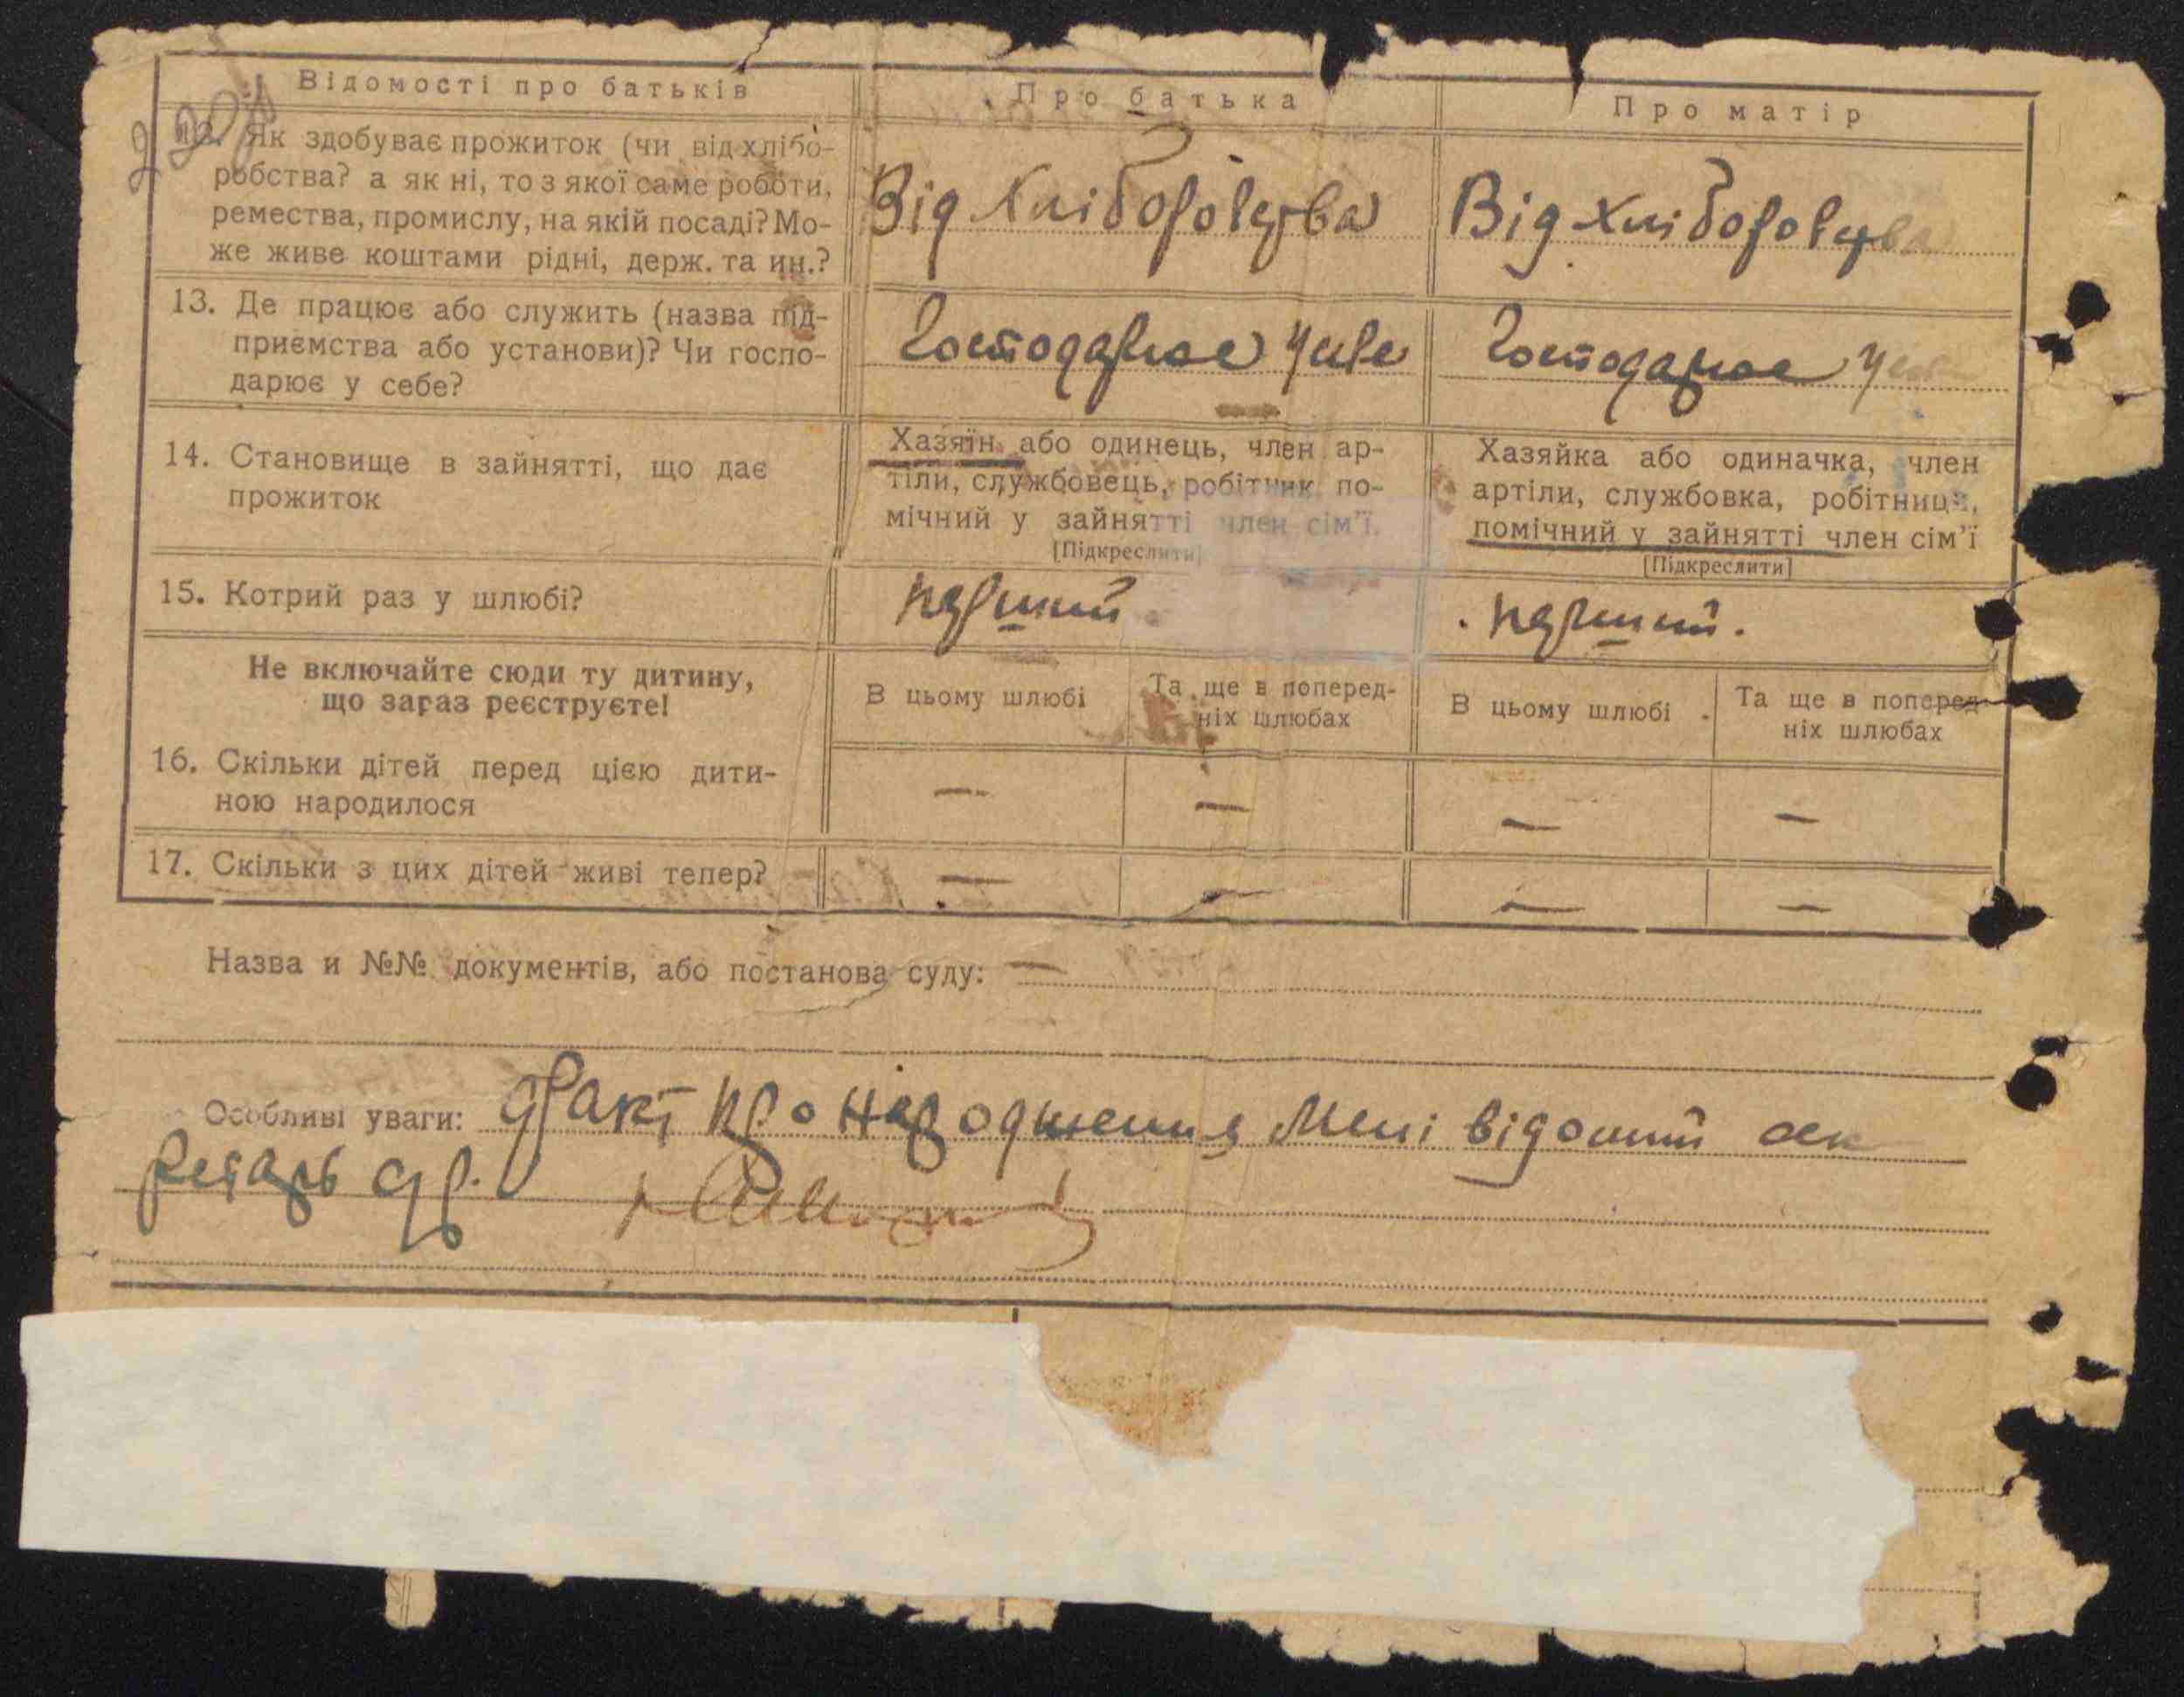 Відомості про батьків
Про батька
Про матір
12. Як здобуває прожиток (чи від хлібо-
робства? а як ні, то з якої саме роботи,
ремества, промислу, на якій посаді? Мо-
же живе коштами рідні, держ. та ин.?
Від Хліборобства
Від Хліборобства
13. Де працює або служить (назва під-
приємства або установи)? Чи госпо-
дарює у себе?
Господарює у себе
Господарює у
14. Становище в зайнятті, що дає
прожиток
Хазяїн або одинець, член ар-
тіли, службовець, робітник, по-
мічний у зайнятті член сім'ї.
[Підкреслити]
Хазяйка або одиначка, член
артіли, службовка, робітниця,
помічний у зайнятті член сім'ї
[Підкреслити]
15. Котрий раз у шлюбі?
перший.
перший.
Не включайте сюди ту дитину,
що зараз реєструєте!
В цьому шлюбі
Та ще в поперед-
ніх шлюбах
В цьому шлюбі
Та ще в поперед-
ніх шлюбах
16. Скільки дітей перед цією дити-
ною народилося
— — — —
17. Скільки з цих дітей живі тепер?
— — — —
Назва и №№ документів, або постанова суду: —
Особливі уваги: Факт про народження Мені відомий сек
ретарь с/р.